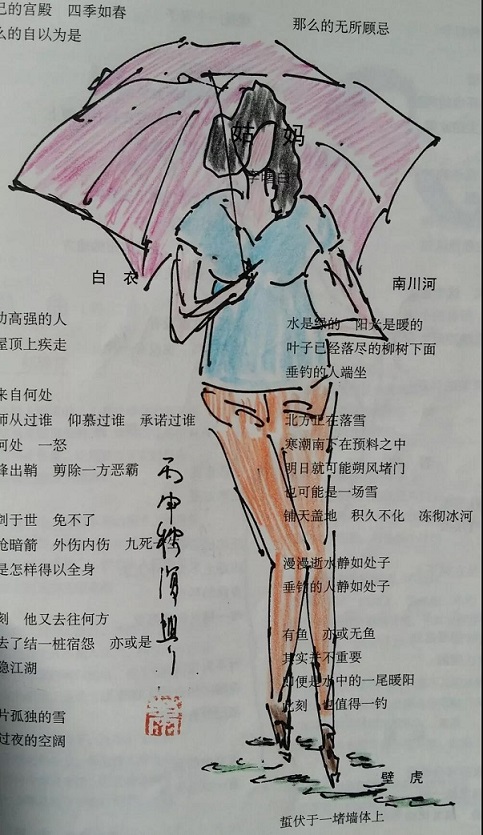 己的宫殿 四季如春
么的自以为是
那么的无所顾忌
姑妈
白衣
功高强的人
屋顶上疾走
来自何处
师从过谁 仰慕过谁 承诺过谁
何处 一怒
锋出鞘 剪除一方恶霸
剑于世 免不了
枪暗箭 外伤内伤 九死
是怎样得以全身
刻 他又去往何方
去了结一桩宿怨 亦或是
隐江湖
片孤独的雪
过夜的空阔
丙申
南川河
水是绿的 阳光是暖的
叶子已经落尽的柳树下面
垂钓的人端坐
北方正在落雪
寒潮南下在预料之中
明日就可能朔风堵门
也可能是一场雪
铺天盖地 积久不化 冻彻冰河
漫漫逝水静如处子
垂钓的人静如处子
有鱼 亦或无鱼
其实并不重要
即便是水中的一尾暖阳
此刻 也值得一钓
壁虎
蜇伏于一堵墙体上